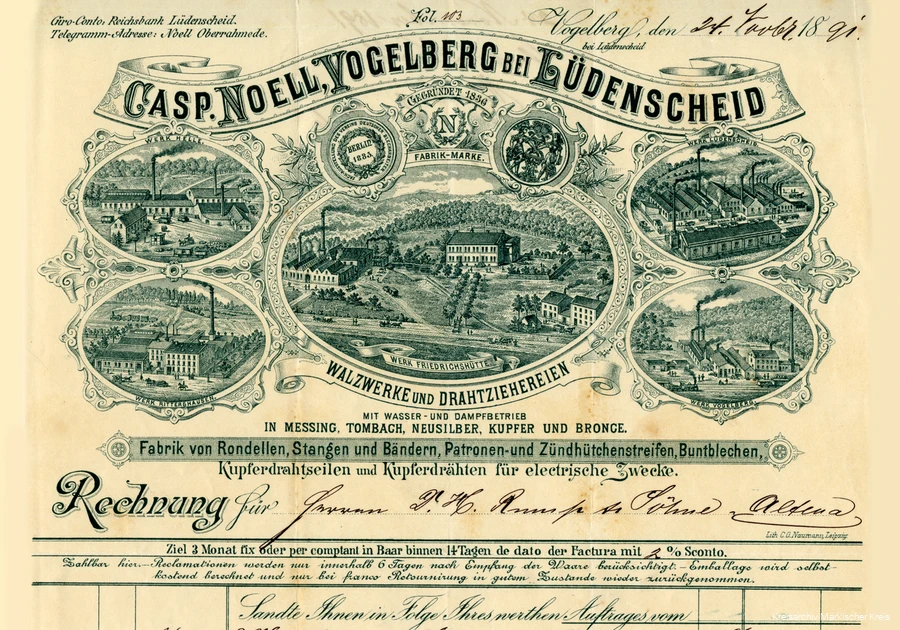 Giro-Conto: Reichsbank Lüdenscheid.
Telegramm-Adresse: Noell Oberrahmede.
Fol. 103
Vogelberg, den 24. Novbr. 1891.
bei Lüdenscheid
CASP. NOELL, VOGELBERG BEI LÜDENSCHEID
GEGRÜNDET 1836
N
FABRIK-MARKE.
BERLIN
1883.
WERK HELLE.
WERK LÜDENSCHEID.
WERK RITTERSHAUSEN.
WERK FRIEDRICHSHÜTTE.
WERK VOGELBERG.
WALZWERKE UND DRAHTZIEHEREIEN
MIT WASSER- UND DAMPFBETRIEB
IN MESSING, TOMBACH, NEUSILBER, KUPFER UND BRONCE.
Fabrik von Rondellen, Stangen und Bändern, Patronen- und Zündhütchenstreifen, Buntblechen,
Kupferdrahtseilen und Kupferdrähten für electrische Zwecke.
Rechnung für Herren D. H. Rump & Söhne Altena
Lith. C. G. Naumann, Leipzig
Ziel 3 Monat fix oder per comptant in Baar binnen 14 Tagen de dato der Factura mit 2 % Sconto.
Zahlbar hier. - Reclamationen werden nur innerhalb 6 Tagen nach Empfang der Waare berücksichtigt. - Emballage wird selbst-
kostend berechnet und nur bei franco Retournirung in gutem Zustande wieder zurückgenommen.
Sandte Ihnen in Folge Ihres werthen Auftrages vom
Kreisarchiv Märkischer Kreis